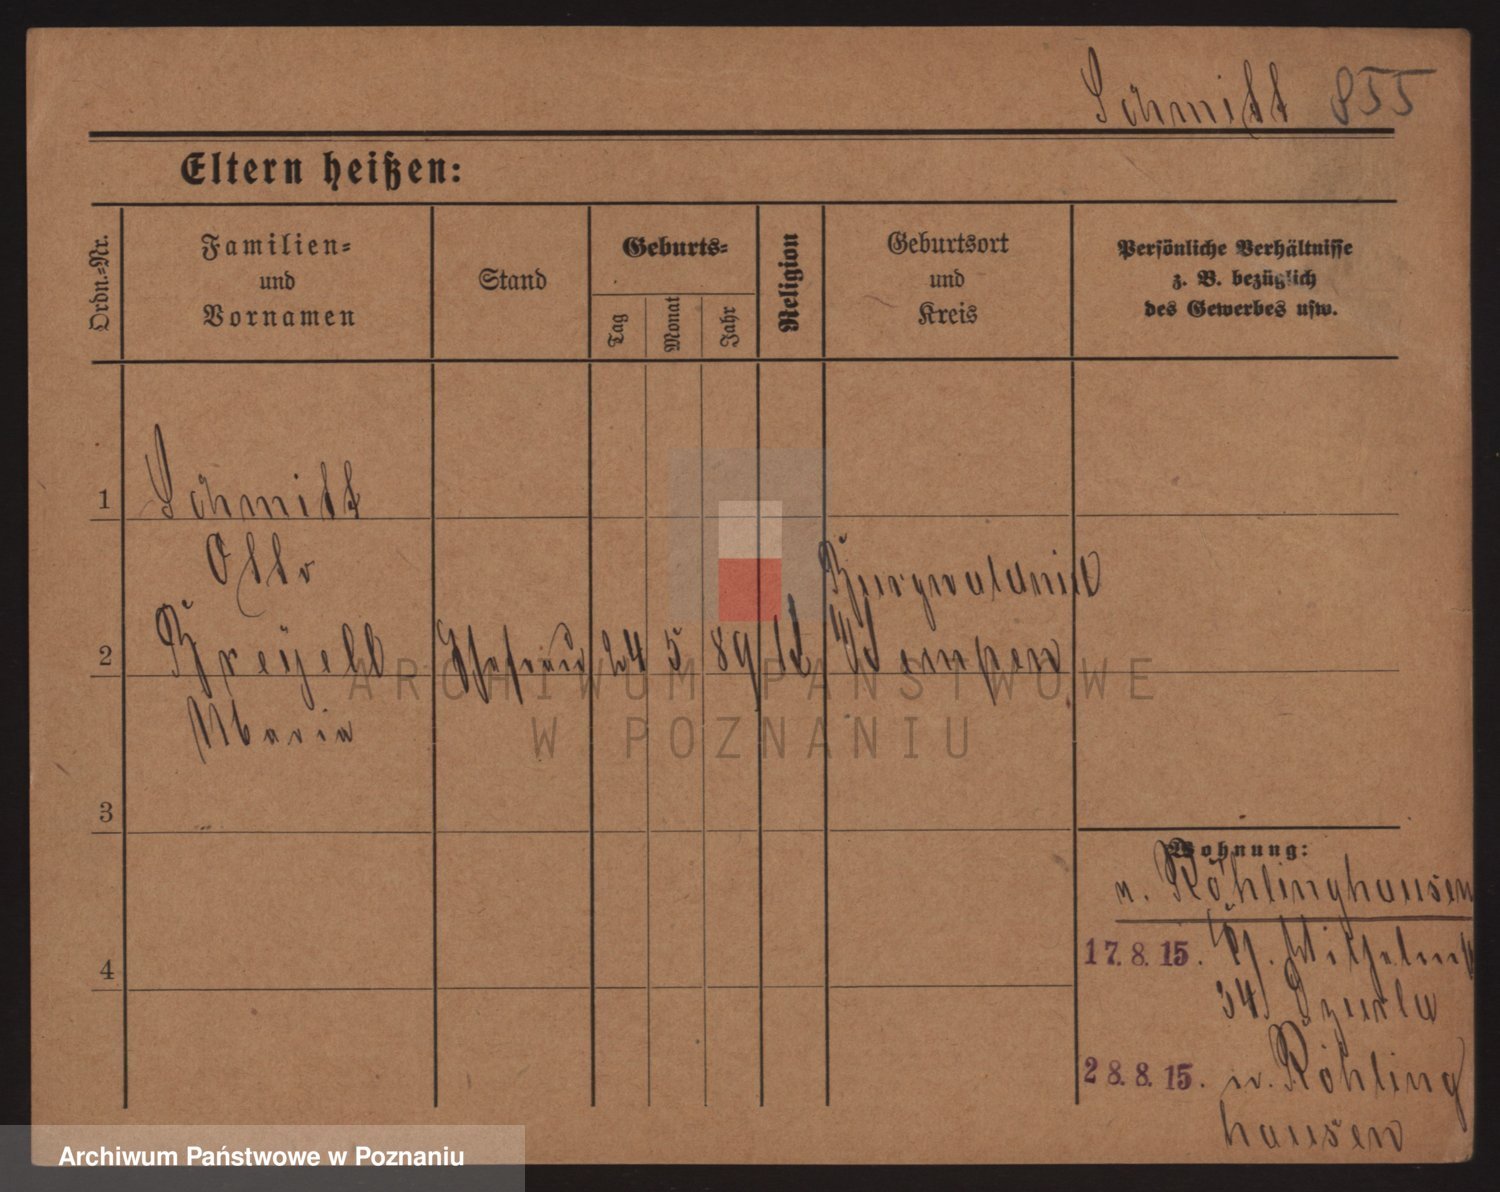 Schmitt 855
Eltern heißen:
Ordn.-Nr.
Familien-
und
Vornamen
Stand
Geburts-
Tag
Monat
Jahr
Religion
Geburtsort
und
Kreis
Persönliche Verhältnisse
z. B. bezüglich
des Gewerbes usw.
1
Schmitt
Otto
2
Breyell
Maria
Ehefrau
24 5 89
Burgwaldniel
Kempen
3
4
Wohnung:
n. Röhlinghausen
17. 8. 15.
34
28. 8. 15. n. Röhling
hausen
ARCHIWUM PAŃSTWOWE
W POZNANIU
Archiwum Państwowe w Poznaniu